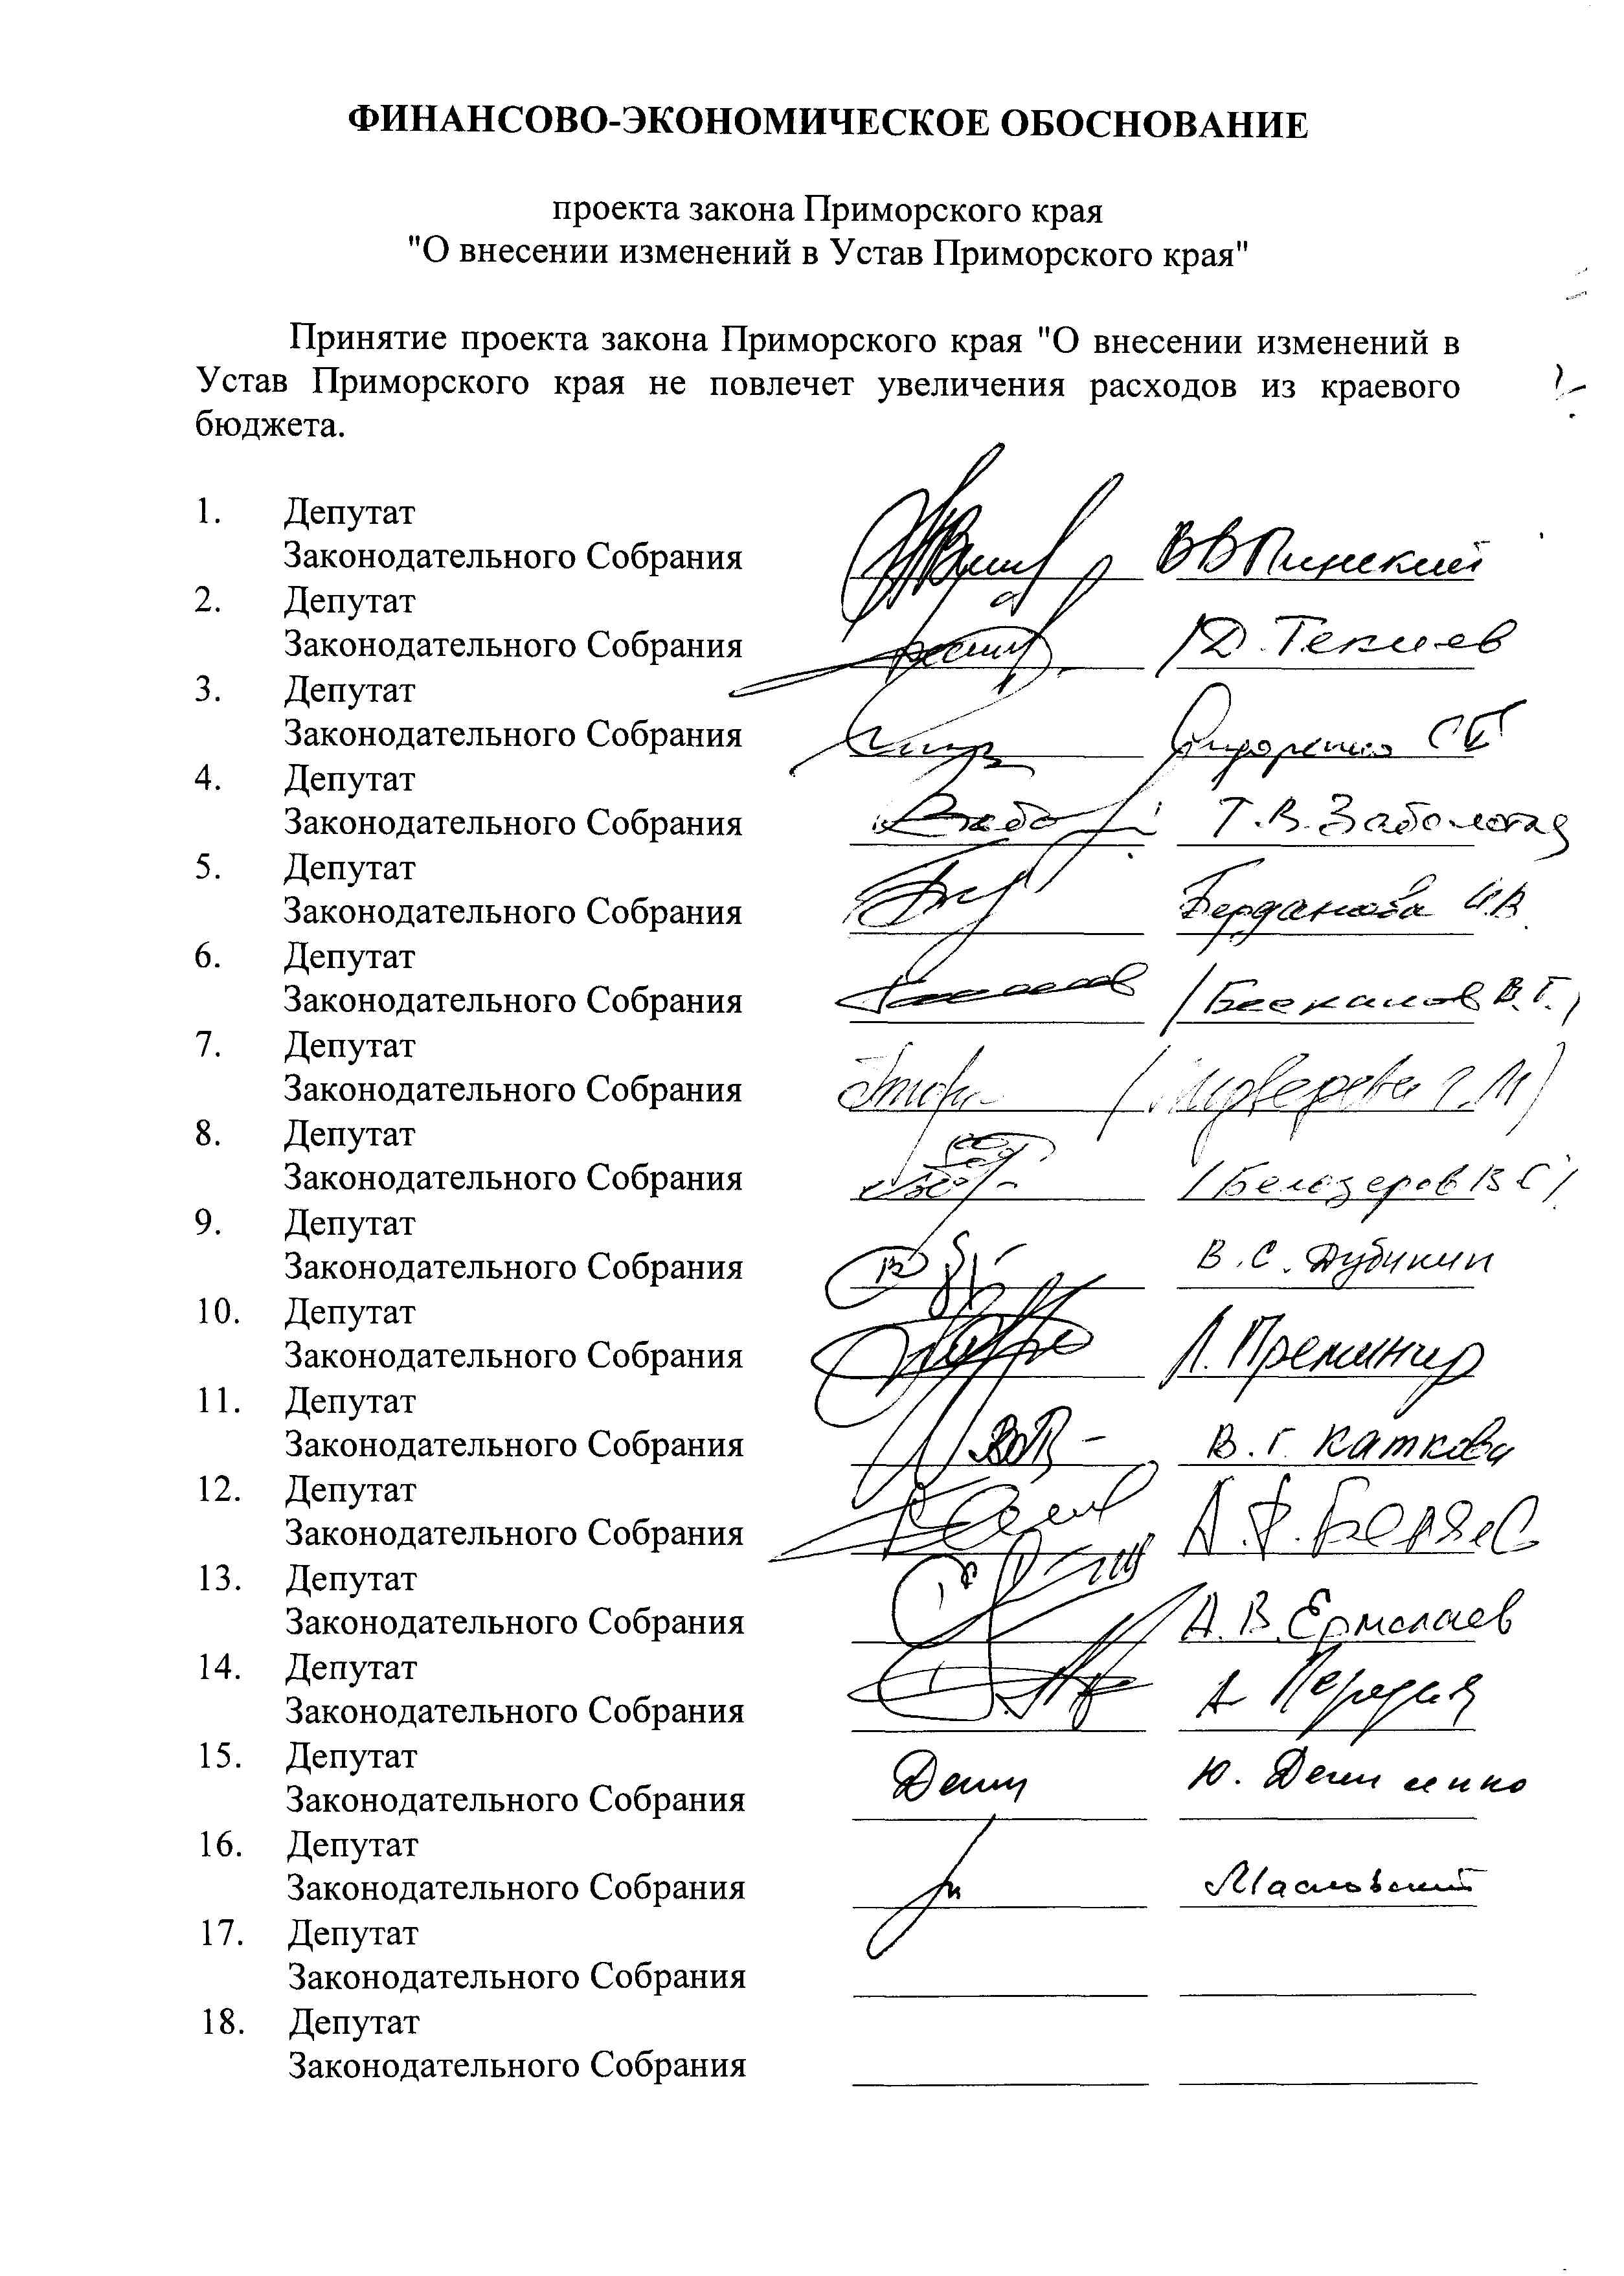 ФИНАНСОВО-ЭКОНОМИЧЕСКОЕ ОБОСНОВАНИЕ
проекта закона Приморского края
"О внесении изменений в Устав Приморского края"
Принятие проекта закона Приморского края "О внесении изменений в
Устав Приморского края не повлечет увеличения расходов из краевого
бюджета.
1. Депутат
Законодательного Собрания ВВПинский
2. Депутат
Законодательного Собрания /Д. Текиев
3. Депутат
Законодательного Собрания
4. Депутат
Законодательного Собрания Т.В.Заболотная
5. Депутат
Законодательного Собрания И.В.
6. Депутат
Законодательного Собрания В.Г.
7. Депутат
Законодательного Собрания
8. Депутат
Законодательного Собрания /Белозеров В С/
9. Депутат
Законодательного Собрания В.С.
10. Депутат
Законодательного Собрания
11. Депутат
Законодательного Собрания В.Г. Каткова
12. Депутат
Законодательного Собрания
13. Депутат
Законодательного Собрания А.В.Ермолаев
14. Депутат
Законодательного Собрания
15. Депутат
Законодательного Собрания Ю.
16. Депутат
Законодательного Собрания Масловский
17. Депутат
Законодательного Собрания
18. Депутат
Законодательного Собрания